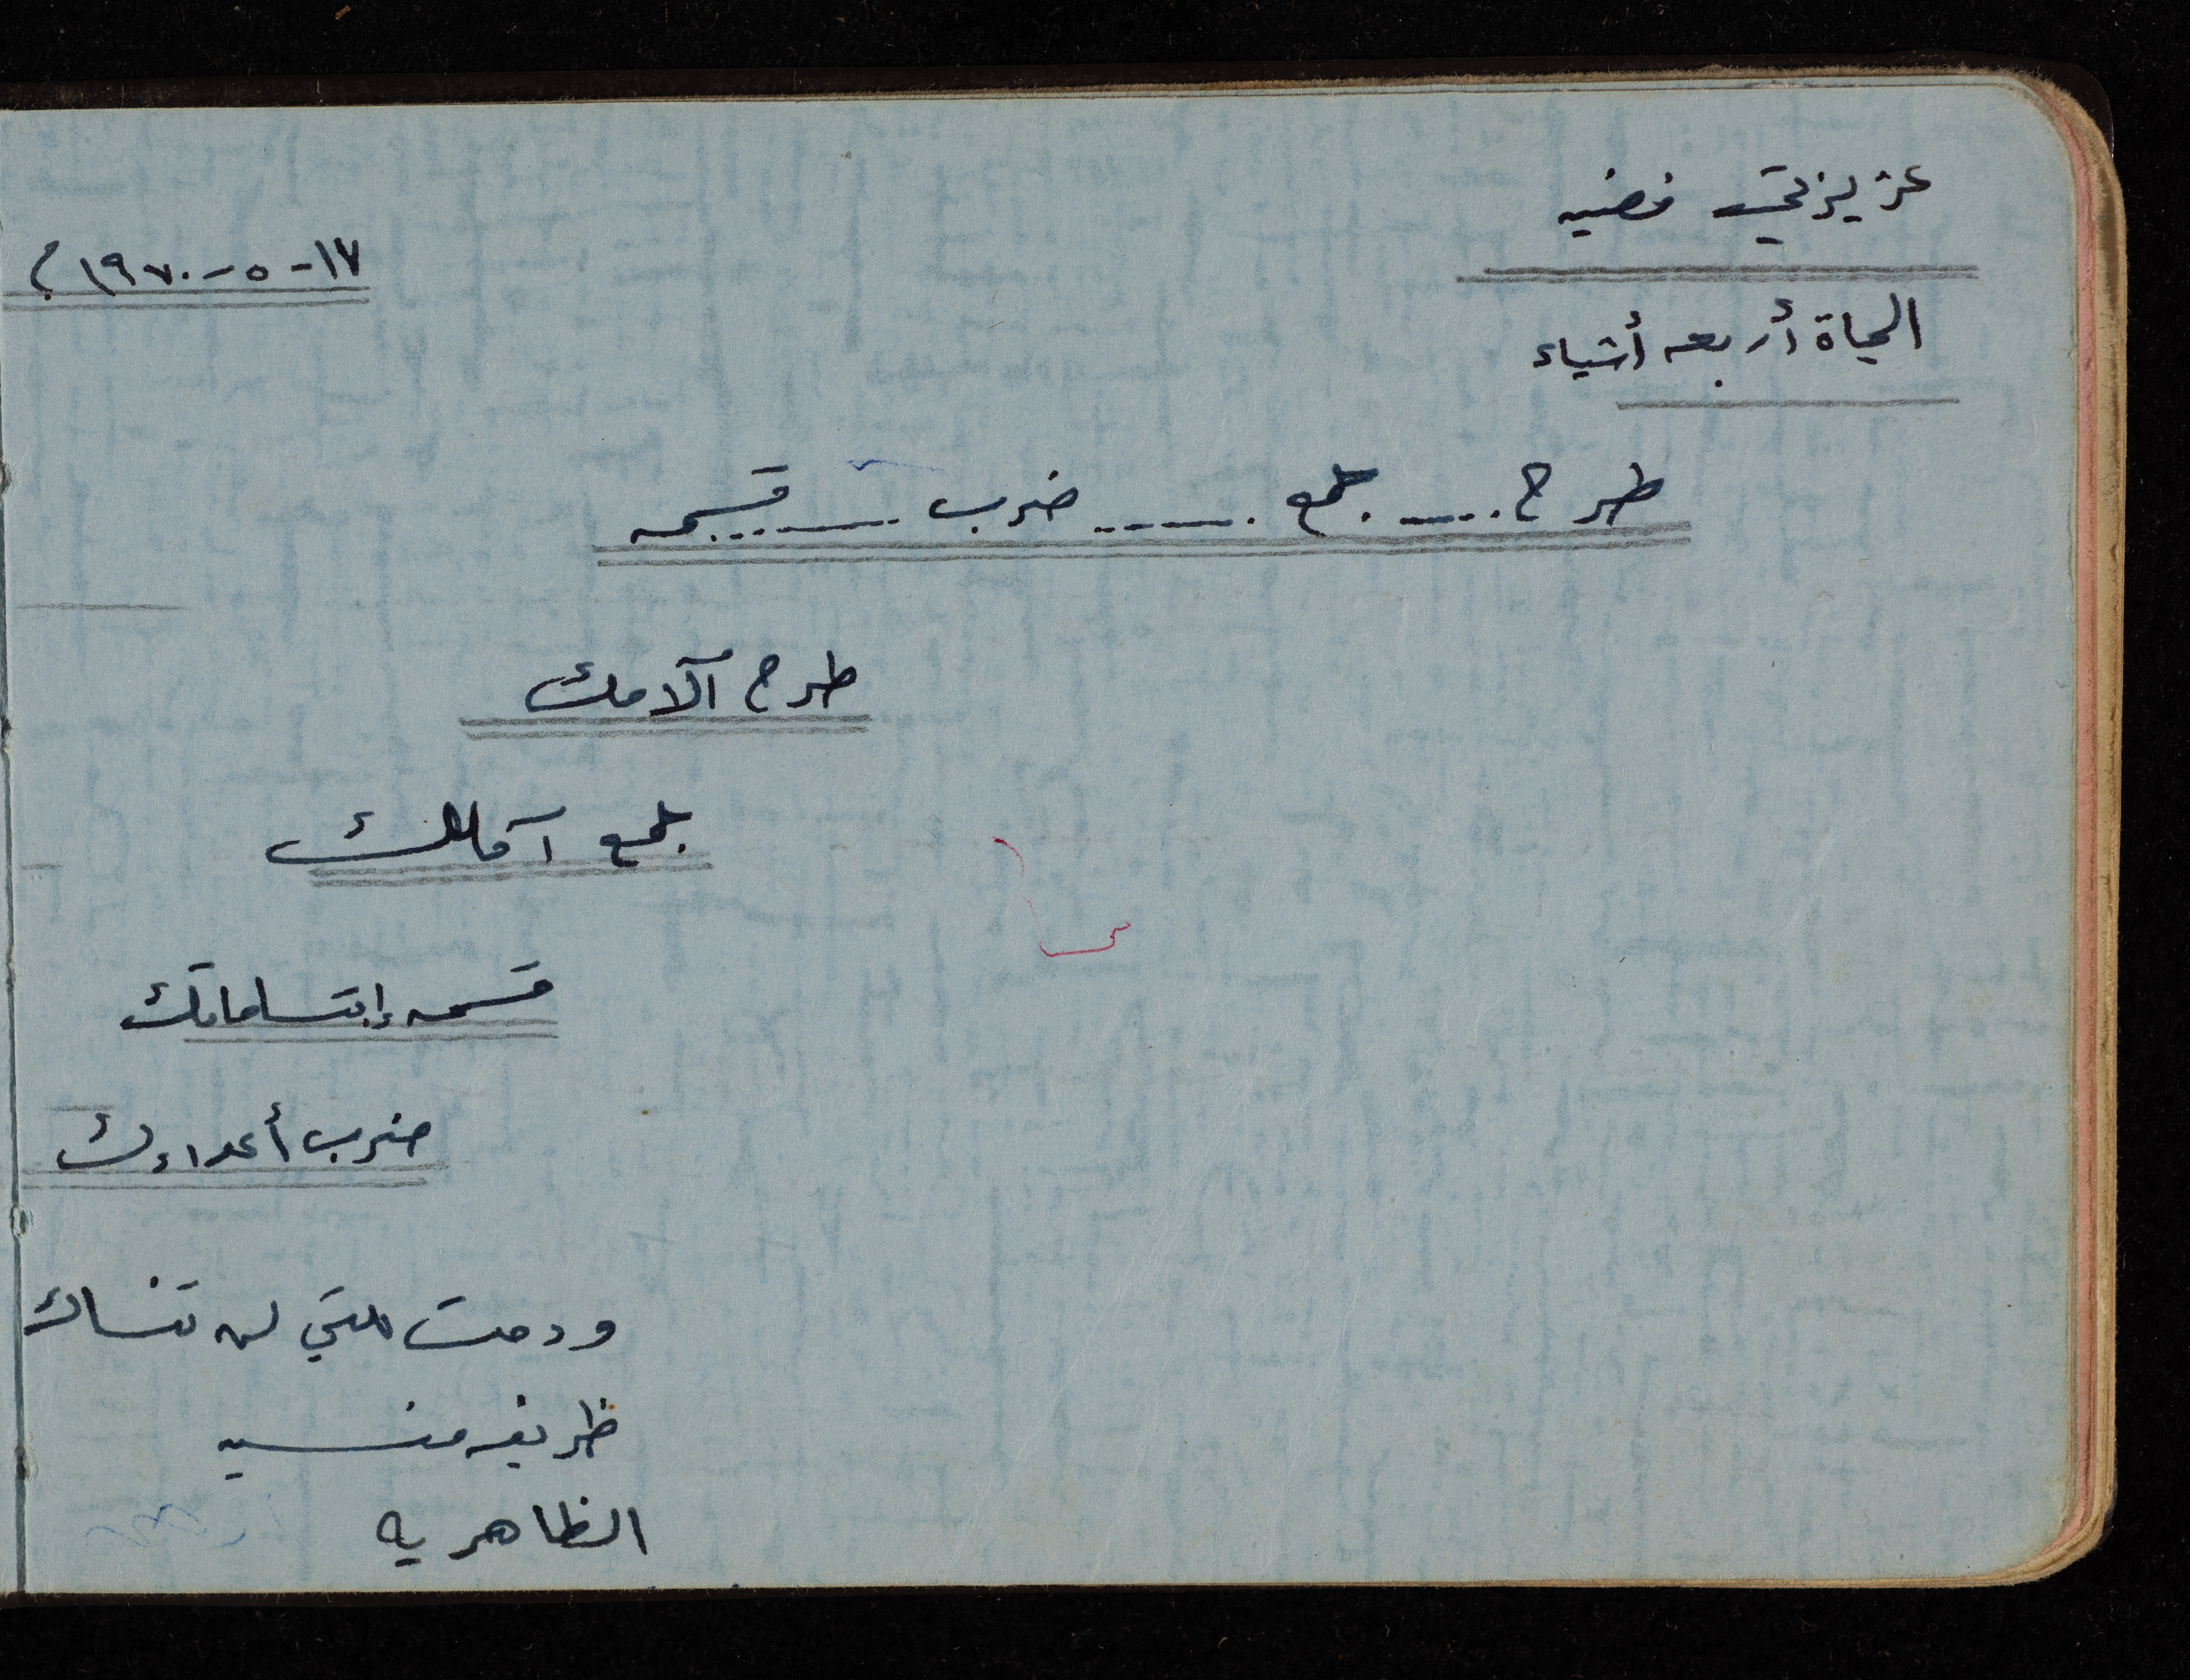 عزيزتي فضيه
١٧-٥-١٩٧٠م
الحياة أربعه أشياء
طرح..... جمع ........ ضرب ........ قسمه
طرح آلامك
جمع آمالك
قسمه إبتساماتك
ضرب أعداءك
ودمت للتي لن تنساك
ظريفه
الظاهريه